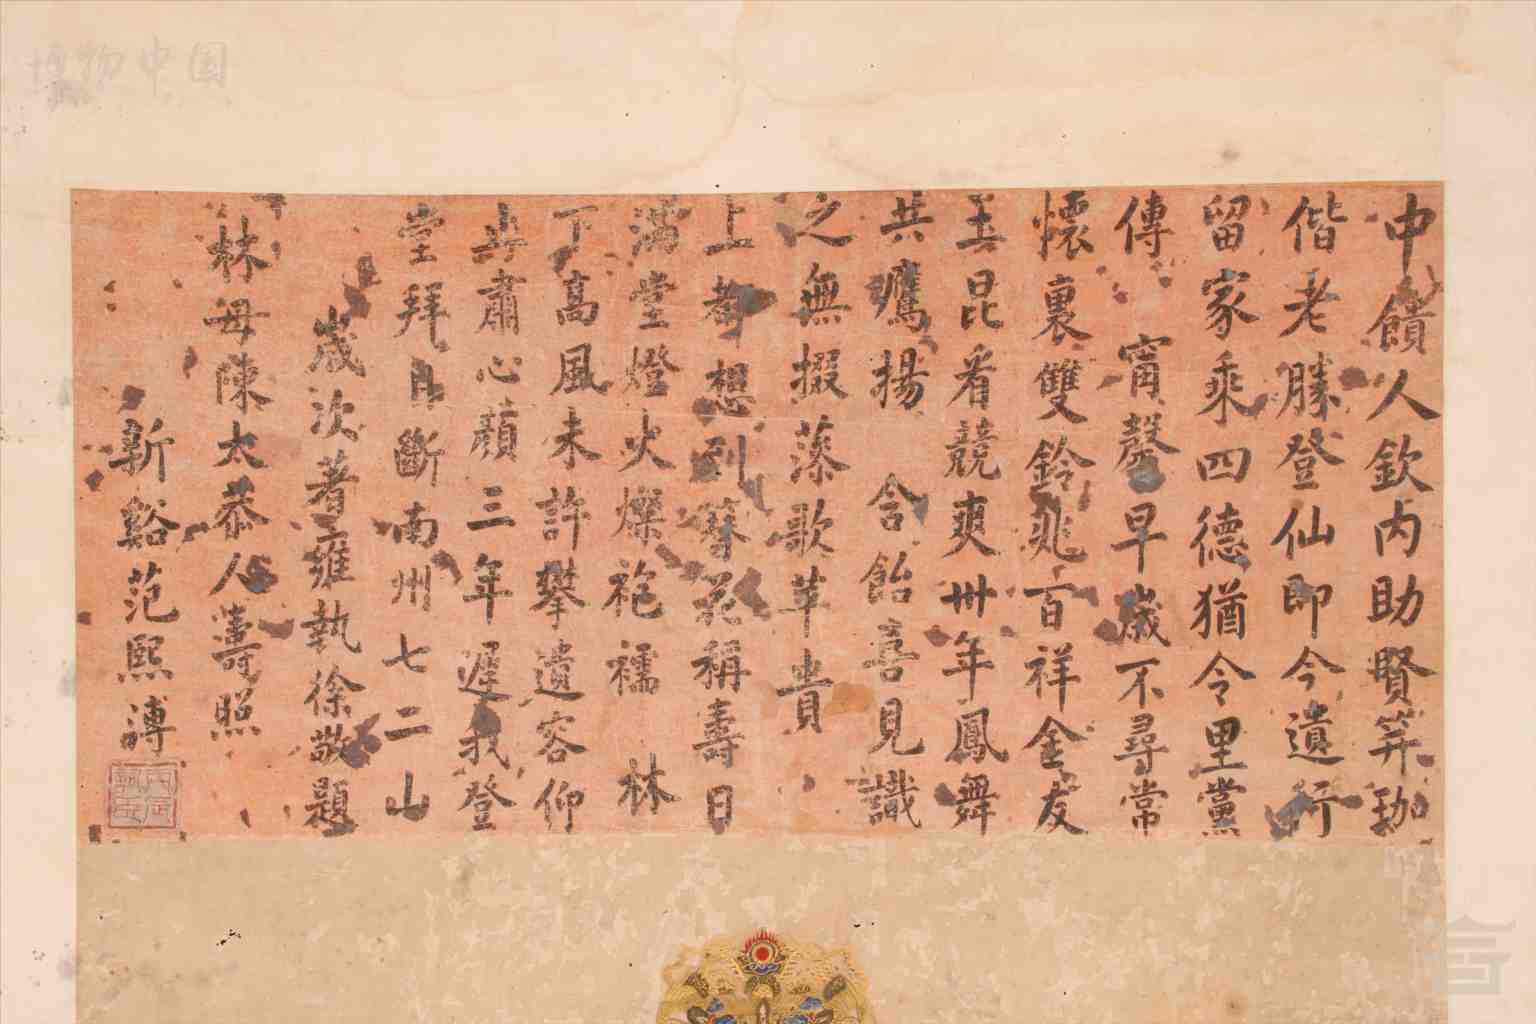 中饋人欽内助賢笄珈
偕老勝登仙即今遺行
留家乘四德猶令里黨
傳 甯馨早歲不尋常
懷裏雙鈴兆百祥金友
玉昆看競爽卅年鳳舞
共鷹揚 含飴喜見識
之無掇藻歌苹貴
上都想到簪花稱壽日
滿堂燈火燦袍襦 林
丁高風未許攀遺容仰
止肅心顏三年遲我登
堂拜目斷南州七二山
歲次著雍執徐敬題
林母陳太恭人壽照
新谿范熙溥
博物中国